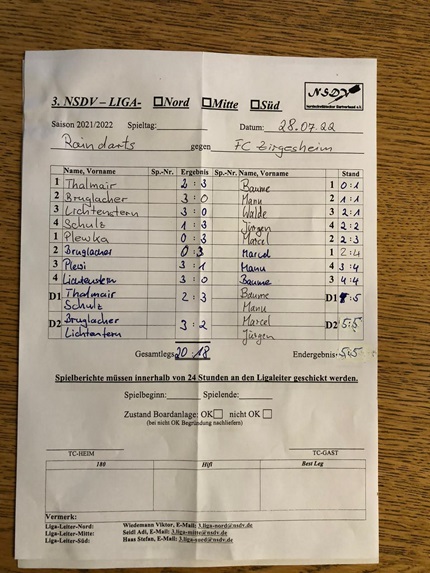 3. NSDV – LIGA- Nord Mitte Süd
NSDV
Saison 2021/2022 Spieltag: Datum: 28.07.22
Raindarts gegen FC Zirgesheim
Name, Vorname Sp.-Nr. Ergebnis Sp.-Nr. Name, Vorname Stand
1 Thalmair 2 : 3 Baume 1 0:1
2 Bruglacher 3 : 0 Manu 2 1:1
3 Lichtenstern 3 : 0 Walde 3 2:1
4 Schulz 1 : 3 Jürgen 4 2:2
1 Plewka 0 : 3 Marcel 2 2:3
2 Bruglacher 0 : 3 Marcel 1 2:4
3 Plewi 3 : 1 Manu 4 3:4
4 Lichtenstern 3 : 0 Baume 3 4:4
D1 Thalmair 2 : 3 Baume D1 :5
Schulz Manu
D2 Bruglacher 3 : 2 Marcel D2 5:5
Lichtenstern Jürgen
Gesamtlegs 20:18 Endergebnis: 5:5
Spielberichte müssen innerhalb von 24 Stunden an den Ligaleiter geschickt werden.
Spielbeginn: Spielende:
Zustand Boardanlage: OK nicht OK
(bei nicht OK Begründung nachliefern)
TC-HEIM TC-GAST
180 Hifi Best Leg
Vermerk:
Liga-Leiter-Nord: Wiedemann Viktor, E-Mail: 3.liga-nord@nsdv.de
Liga-Leiter-Mitte: Seidl Adi, E-Mail: 3.liga-mitte@nsdv.de
Liga-Leiter-Süd: Haas Stefan, E-Mail: 3.liga-nord@nsdv.de